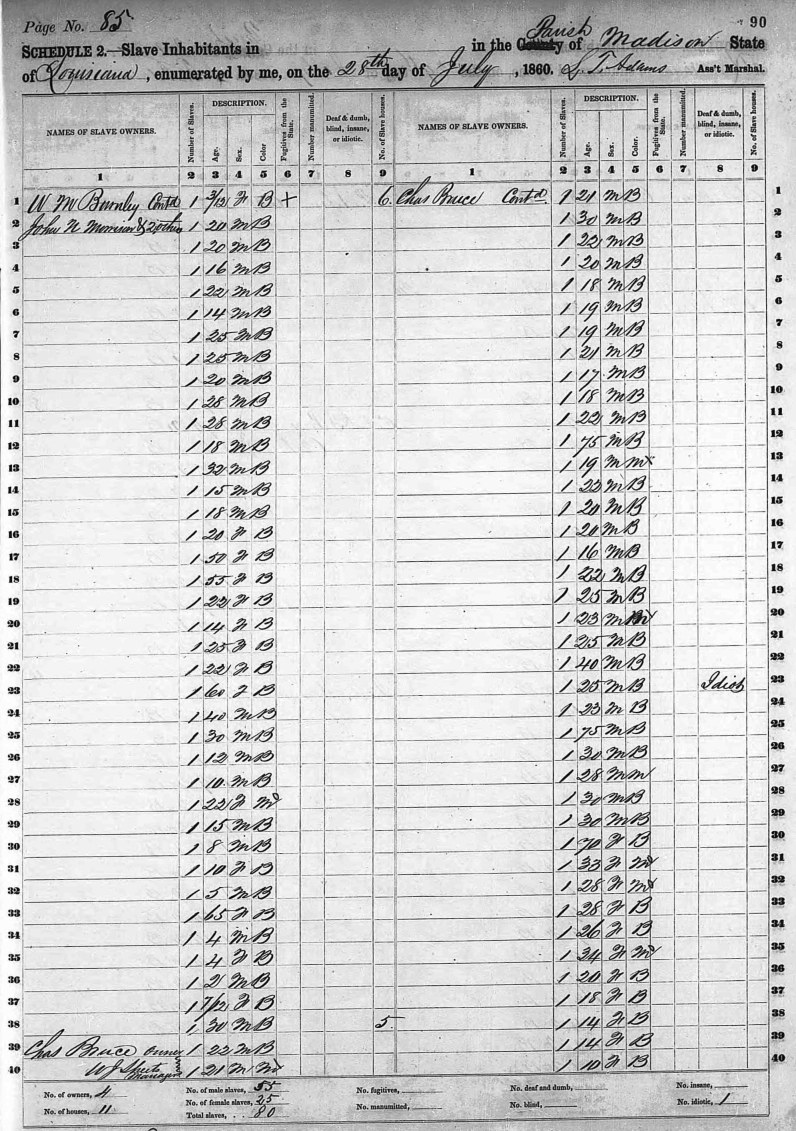 Page No. 85
90
SCHEDULE 2.—Slave Inhabitants in in the County Parish of Madison State
of Louisiana, enumerated by me, on the 28th day of July, 1860. S. T. Adams Ass't Marshal.
NAMES OF SLAVE OWNERS. Number of Slaves. DESCRIPTION. Age. Sex. Color Fugitives from the State. Number manumitted. Deaf & dumb, blind, insane, or idiotic. No. of Slave houses. NAMES OF SLAVE OWNERS. Number of Slaves. DESCRIPTION. Age. Sex. Color Fugitives from the State. Number manumitted. Deaf & dumb, blind, insane, or idiotic. No. of Slave houses.
1 2 3 4 5 6 7 8 9 1 2 3 4 5 6 7 8 9
1 W M Burnley Contd 1 3/12 F B + 6 Chas Bruce Contd 1 21 M B 1
2 John N Morrison & 2 others 1 20 M B 1 30 M B 2
3 1 20 M B 1 22 M B 3
4 1 16 M B 1 20 M B 4
5 1 22 M B 1 18 M B 5
6 1 14 M B 1 19 M B 6
7 1 25 M B 1 19 M B 7
8 1 25 M B 1 21 M B 8
9 1 20 M B 1 17 M B 9
10 1 28 M B 1 18 M B 10
11 1 28 M B 1 22 M B 11
12 1 18 M B 1 75 M B 12
13 1 32 M B 1 19 M M 13
14 1 15 M B 1 22 M B 14
15 1 18 M B 1 20 M B 15
16 1 20 F B 1 20 M B 16
17 1 50 F B 1 16 M B 17
18 1 55 F B 1 22 M B 18
19 1 22 F B 1 25 M B 19
20 1 14 F B 1 23 M 20
21 1 25 F B 1 25 M B 21
22 1 22 F B 1 40 M B 22
23 1 60 F B 1 25 M B Idiot 23
24 1 40 M B 1 23 M B 24
25 1 30 M B 1 75 M B 25
26 1 12 M B 1 30 M B 26
27 1 10 M B 1 28 M M 27
28 1 22 F M 1 30 M B 28
29 1 15 M B 1 30 M B 29
30 1 8 M B 1 70 F B 30
31 1 10 F B 1 33 F M 31
32 1 5 M B 1 28 F M 32
33 1 65 F B 1 28 F B 33
34 1 4 M B 1 26 F B 34
35 1 4 F B 1 24 F M 35
36 1 2 M B 1 20 F B 36
37 1 7/12 F B 1 18 F B 37
38 1 30 M B 5 1 14 F B 38
39 Chas Bruce owner 1 22 M B 1 14 F B 39
40 W J Manager 1 21 M M 1 10 F B 40
No. of owners, 4 No. of male slaves, 55 No. fugitives, No. of deaf and dumb, No. insane,
No. of houses, 11 No. of female slaves, 25 No. manumitted, No. blind, No. idiotic, 1
Total slaves, 80